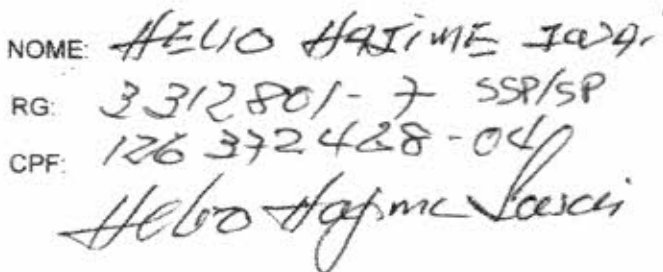 NOME: HELIO HAJIME
RG: 3312801-7 SSP/SP
CPF: 126372428-04
Helio Hajime